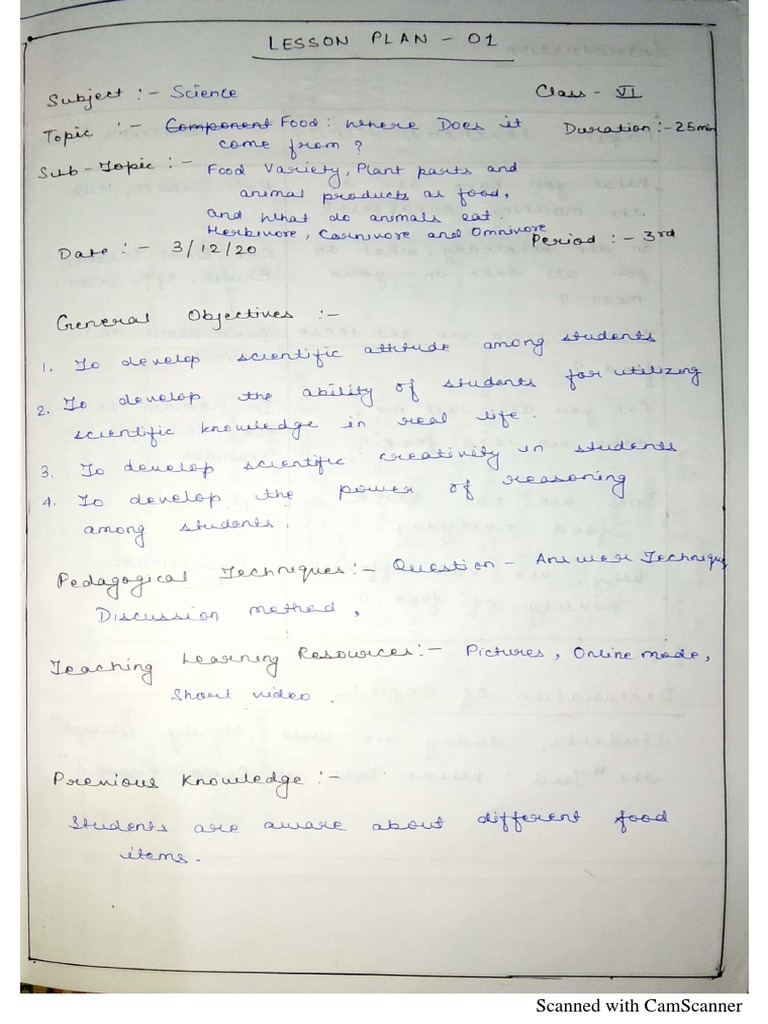 LESSON PLAN - 01
Subject :- Science Class - VI
Topic :- Component Food: Where Does it Duration :- 25min
come from ?
Sub-Topic :- Food Variety, Plant parts and
animal products as food,
and What do animals eat.
Herbivore, Carnivore and Omnivore
Date :- 3/12/20 Period :- 3rd
General Objectives :-
1. To develop scientific attitude among students
2. To develop the ability of students for utilizing
scientific knowledge in real life.
3. To develop scientific creativity in students
4. To develop the power of reasoning
among students.
Pedagogical Techniques :- Question - Answer Technique,
Discussion method,
Teaching Learning Resources :- Pictures, Online mode,
Short video.
Previous Knowledge :-
Students are aware about different food
items.
Scanned with CamScanner